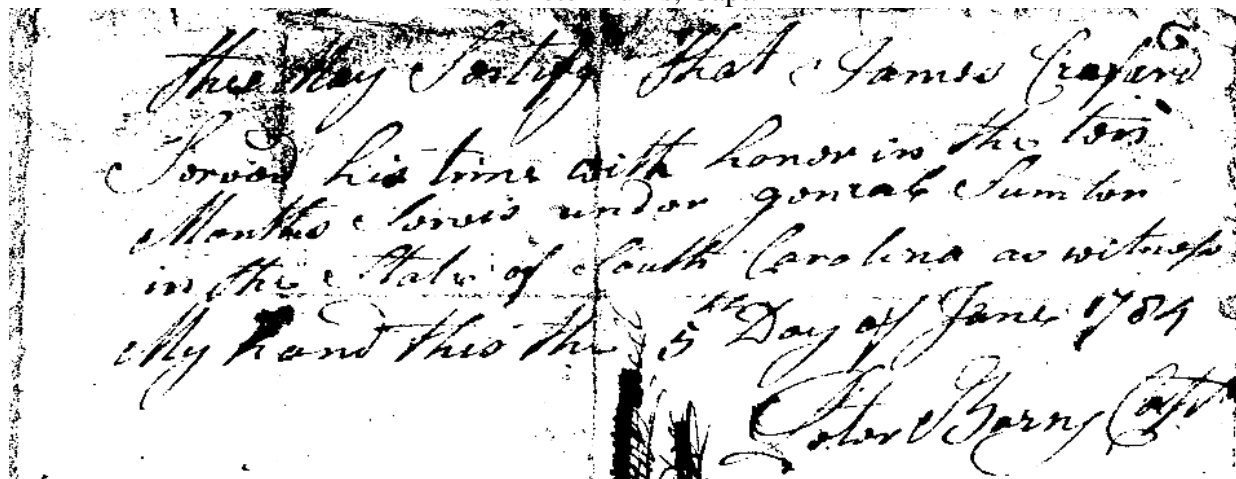 this May Sertify that James Craford
Served his time with honor in the ten
Months Servis under genral Sumter
in the State of South Carolina as witness
My hand this the 5th Day of June 1784
Peter Barns Capt